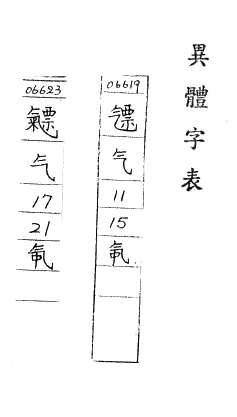 異體字表
06619
气
11
15
06623
气
17
21